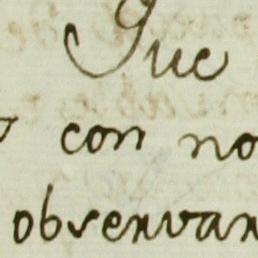 Que
con no
observan